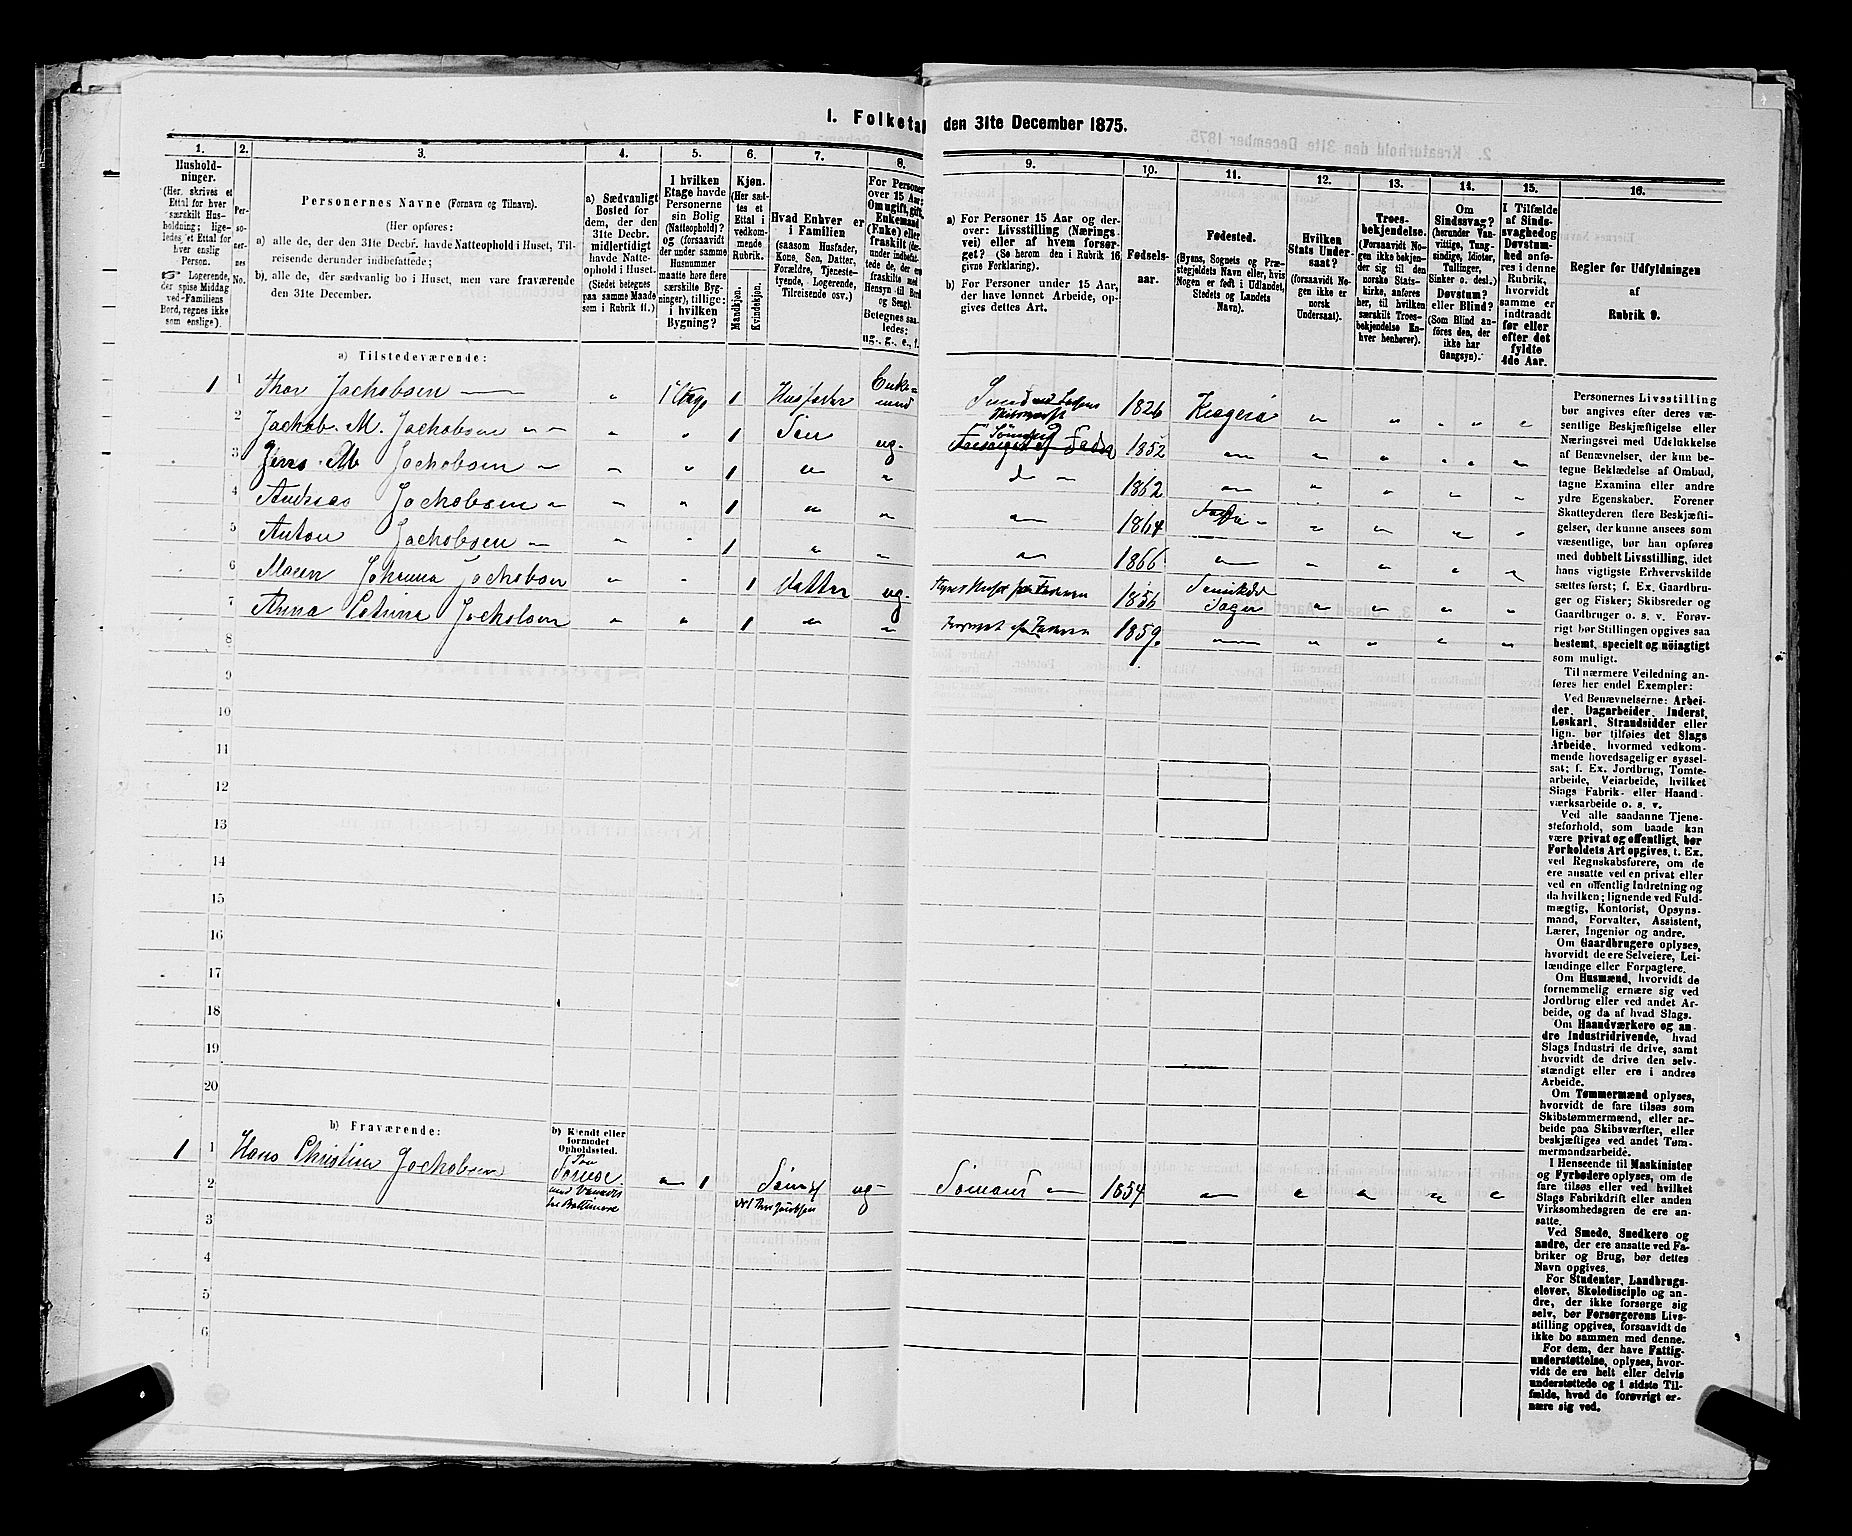 I. Folketal den 31te December 1875.
1. 2. 3. 4. 5. 6. 7. 8. 9. 10. 11. 12. 13. 14. 15. 16.
Husholdninger.
(Her skrives et
Ettal for hver
særskilt Husholdning;
ligeledes et Ettal for
hver enslig
Person.
☞ Logerende,
der spise Middag
ved Familiens
Bord, regnes ikke
som enslige).
Personernes
No.
Personernes Navne (Fornavn og Tilnavn).
(Her opføres:
a) alle de, der den 31te Decbr. havde Natteophold i Huset, Tilreisende derunder indbefattede;
b) alle de, der sædvanlig bo i Huset, men vare fraværende
den 31te December.
a) Sædvanligt
Bosted for
dem, der den
31te Decbr.
midlertidigt
havde Natteophold
i Huset.
(Stedet betegnes
paa samme Maade
som i Rubrik 11.)
I hvilken
Etage havde
Personerne
sin Bolig
(Natteophold)?
og (forsaavidt
der under samme
Husnummer
maatte høre flere
særskilte Bygninger),
tillige:
i hvilken
Bygning?
Kjøn.
(Her sættes
et
Ettal i
vedkommende
Rubrik.
Mandkjøn.
Kvindekjøn.
Hvad Enhver er
i Familien
(saasom Husfader,
Kone, Søn, Datter,
Forældre, Tjenestetyende,
Logerende,
Tilreisende osv.)
For Personer
over 15 Aar:
Om ugift, gift,
Enkemand
(Enke) eller
fraskilt
Betegnes saaledes:
ug., g., e., f.
a) For Personer 15 Aar og derover:
Livsstilling (Næringsvei)
eller af hvem forsørget?
(Se herom den i Rubrik 16
givne Forklaring).
b) For Personer under 15 Aar,
der have lønnet Arbeide, opgives
dettes Art.
Fødselsaar.
Fødested.
(Byens, Sognets og Præstegjeldets
Navn eller, hvis
Nogen er født i Udlandet,
Stedets og Landets
Navn).
Hvilken
Stats Undersaat?
(forsaavidt Nogen
ikke er
norsk
Undersaat).
Troesbekjendelse.
(Forsaavidt Nogen
ikke bekjender
sig til den
norske Statskirke,
anføres
her, til hvilken
særskilt Troesbekjendelse
Enhver
henhører).
Om
Sindssvag?
(herunder Vanvittige,
Tungsindige,
Idioter,
Tullinger,
Sinker o. desl.)
Døvstum?
eller Blind?
(Som Blind anføres
den, der
ikke har
Gangsyn).
I Tilfælde
af Sindssvaghed
og
Døvstumhed
anføres
i denne
Rubrik,
hvorvidt
samme er
indtraadt
før eller
efter det
fyldte
4de Aar.
Regler for Udfyldningen
af
Rubrik 9.
a) Tilstedeværende:
1 1 Thor Jachobsen — " 1 Etage 1 Husfader Enkemand 1826 Kragerø " " " "
2 Jachob. M. Jachobsen " " " 1 Søn ug. 1852 " " " " "
3 Jens. M Jachobsen " " " 1 " " do 1862 " " " " "
4 Andreas Jachobsen " " " 1 " " " 1864 " " " "
5 Anton Jachobsen " " " 1 " " " 1866 " " " " "
6 Maren Johanna Jachobsen " " 1 Datter ug. 1856 " " " "
7 Anna Jachobsen " " 1 " " Forsørget af Faderen 1859. " " " " "
8
9
10
11
12
13
14
15
16
17
18
19
20
b) Fraværende:
b) Kjendt eller
formodet
Opholdssted.
1 1 Hans Christian Jachobsen " 1 ug. Sømand " 1854 " " " " "
2
3
4
5
6
Personernes Livsstilling
bør angives efter deres væsentlige
Beskjæftigelse eller
Næringsvei med Udelukkelse
af Benævnelser, der kun betegne
Beklædelse af Ombud,
tagne Examina eller andre
ydre Egenskaber. Forener
Skatteyderen flere Beskjæftigelser,
der kunne ansees som
væsentlige, bør han opføres
med dobbelt Livsstilling, idet
hans vigtigste Erhvervskilde
sættes først; f. Ex. Gaardbruger
og Fisker; Skibsreder og
Gaardbruger o. s. v. Forøvrigt
bør Stillingen opgives saa
bestemt, specielt og nøiagtigt
som muligt.
Til nærmere Veiledning anføres
her endel Exempler:
Ved Benævnelserne: Arbeider,
Dagarbeider, Inderst,
Løskarl, Strandsidder eller
lign. bør tilføies det Slags
Arbeide, hvormed vedkommende
hovedsagelig er sysselsat;
f. Ex. Jordbrug, Tomtearbeide,
Veiarbeide, hvilket
Slags Fabrik- eller Haandværksarbeide
o. s. v.
Ved alle saadanne Tjenesteforhold,
som baade kan
være privat og offentligt, bør
Forholdets Art opgives, t. Ex.
ved Regnskabsførere, om de
ere ansatte ved en privat eller
ved en offentlig Indretning og
da hvilken; lignende ved Fuldmægtig,
Kontorist, Opsynsmand,
Forvalter, Assistent,
Lærer, Ingeniør og andre.
Om Gaardbrugere oplyses,
hvorvidt de ere Selveiere, Leilændinge
eller Forpagtere.
Om Husmænd, hvorvidt de
fornemmelig ernære sig ved
Jordbrug eller ved andet Arbeide,
og da af hvad Slags.
Om Haandværkere og andre
Industridrivende, hvad
Slags Industri de drive, samt
hvorvidt de drive den selvstændigt
eller ere i andres
Arbeide.
Om Tømmermænd oplyses,
hvorvidt de fare tilsøs som
Skibstømmermænd, eller arbeide
paa Skibsværfter, eller
beskjæftiges ved andet Tømmermandsarbeide.
I Henseende til Maskinister
og Fyrbødere oplyses, om de
fare tilsøs eller ved hvilket
Slags Fabrikdrift eller anden
Virksomhedsgren de ere ansatte.
Ved Smede, Snedkere og
andre, der ere ansatte ved Fabriker
og Brug, bør dettes
Navn opgives.
For Studenter, Landbrugselever,
Skoledisciple og andre,
der ikke forsørge sig
selv, bør Forsørgerens Livsstilling
opgives, forsaavidt de
ikke bo sammen med denne.
For dem, der have Fattigunderstøttelse,
oplyses, hvorvidt
de ere helt eller delvis
understøttede og i sidste Tilfælde,
hvad de forøvrigt ernære
sig ved.